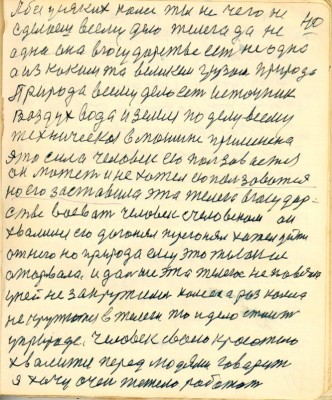 А без уяких колес ты не чего не
40
сделаеш всему делу телега да не
одна она вгосударстве есть не одна
а из каким та великим грузом природа
Природа всему делу есть источник
Воздух вода и земля поделу всему
техническая вмашине применена
это сила человек ею ползовается
он может и не хотел ею ползоватся
но его заставила эта телега вгосудар-
стве воеват человек счеловеком он
хвалился его догонял перегонял хотел уйти
отнего но природа ему это только не
оторвала, и дальше эта телега не
уней не закрутились колеса а раз колеса
не крутятся в телеги то и дело стоит
уприроде. Человек своею красотою
хвалится перед людями говорит
я хочу очен тежело работат